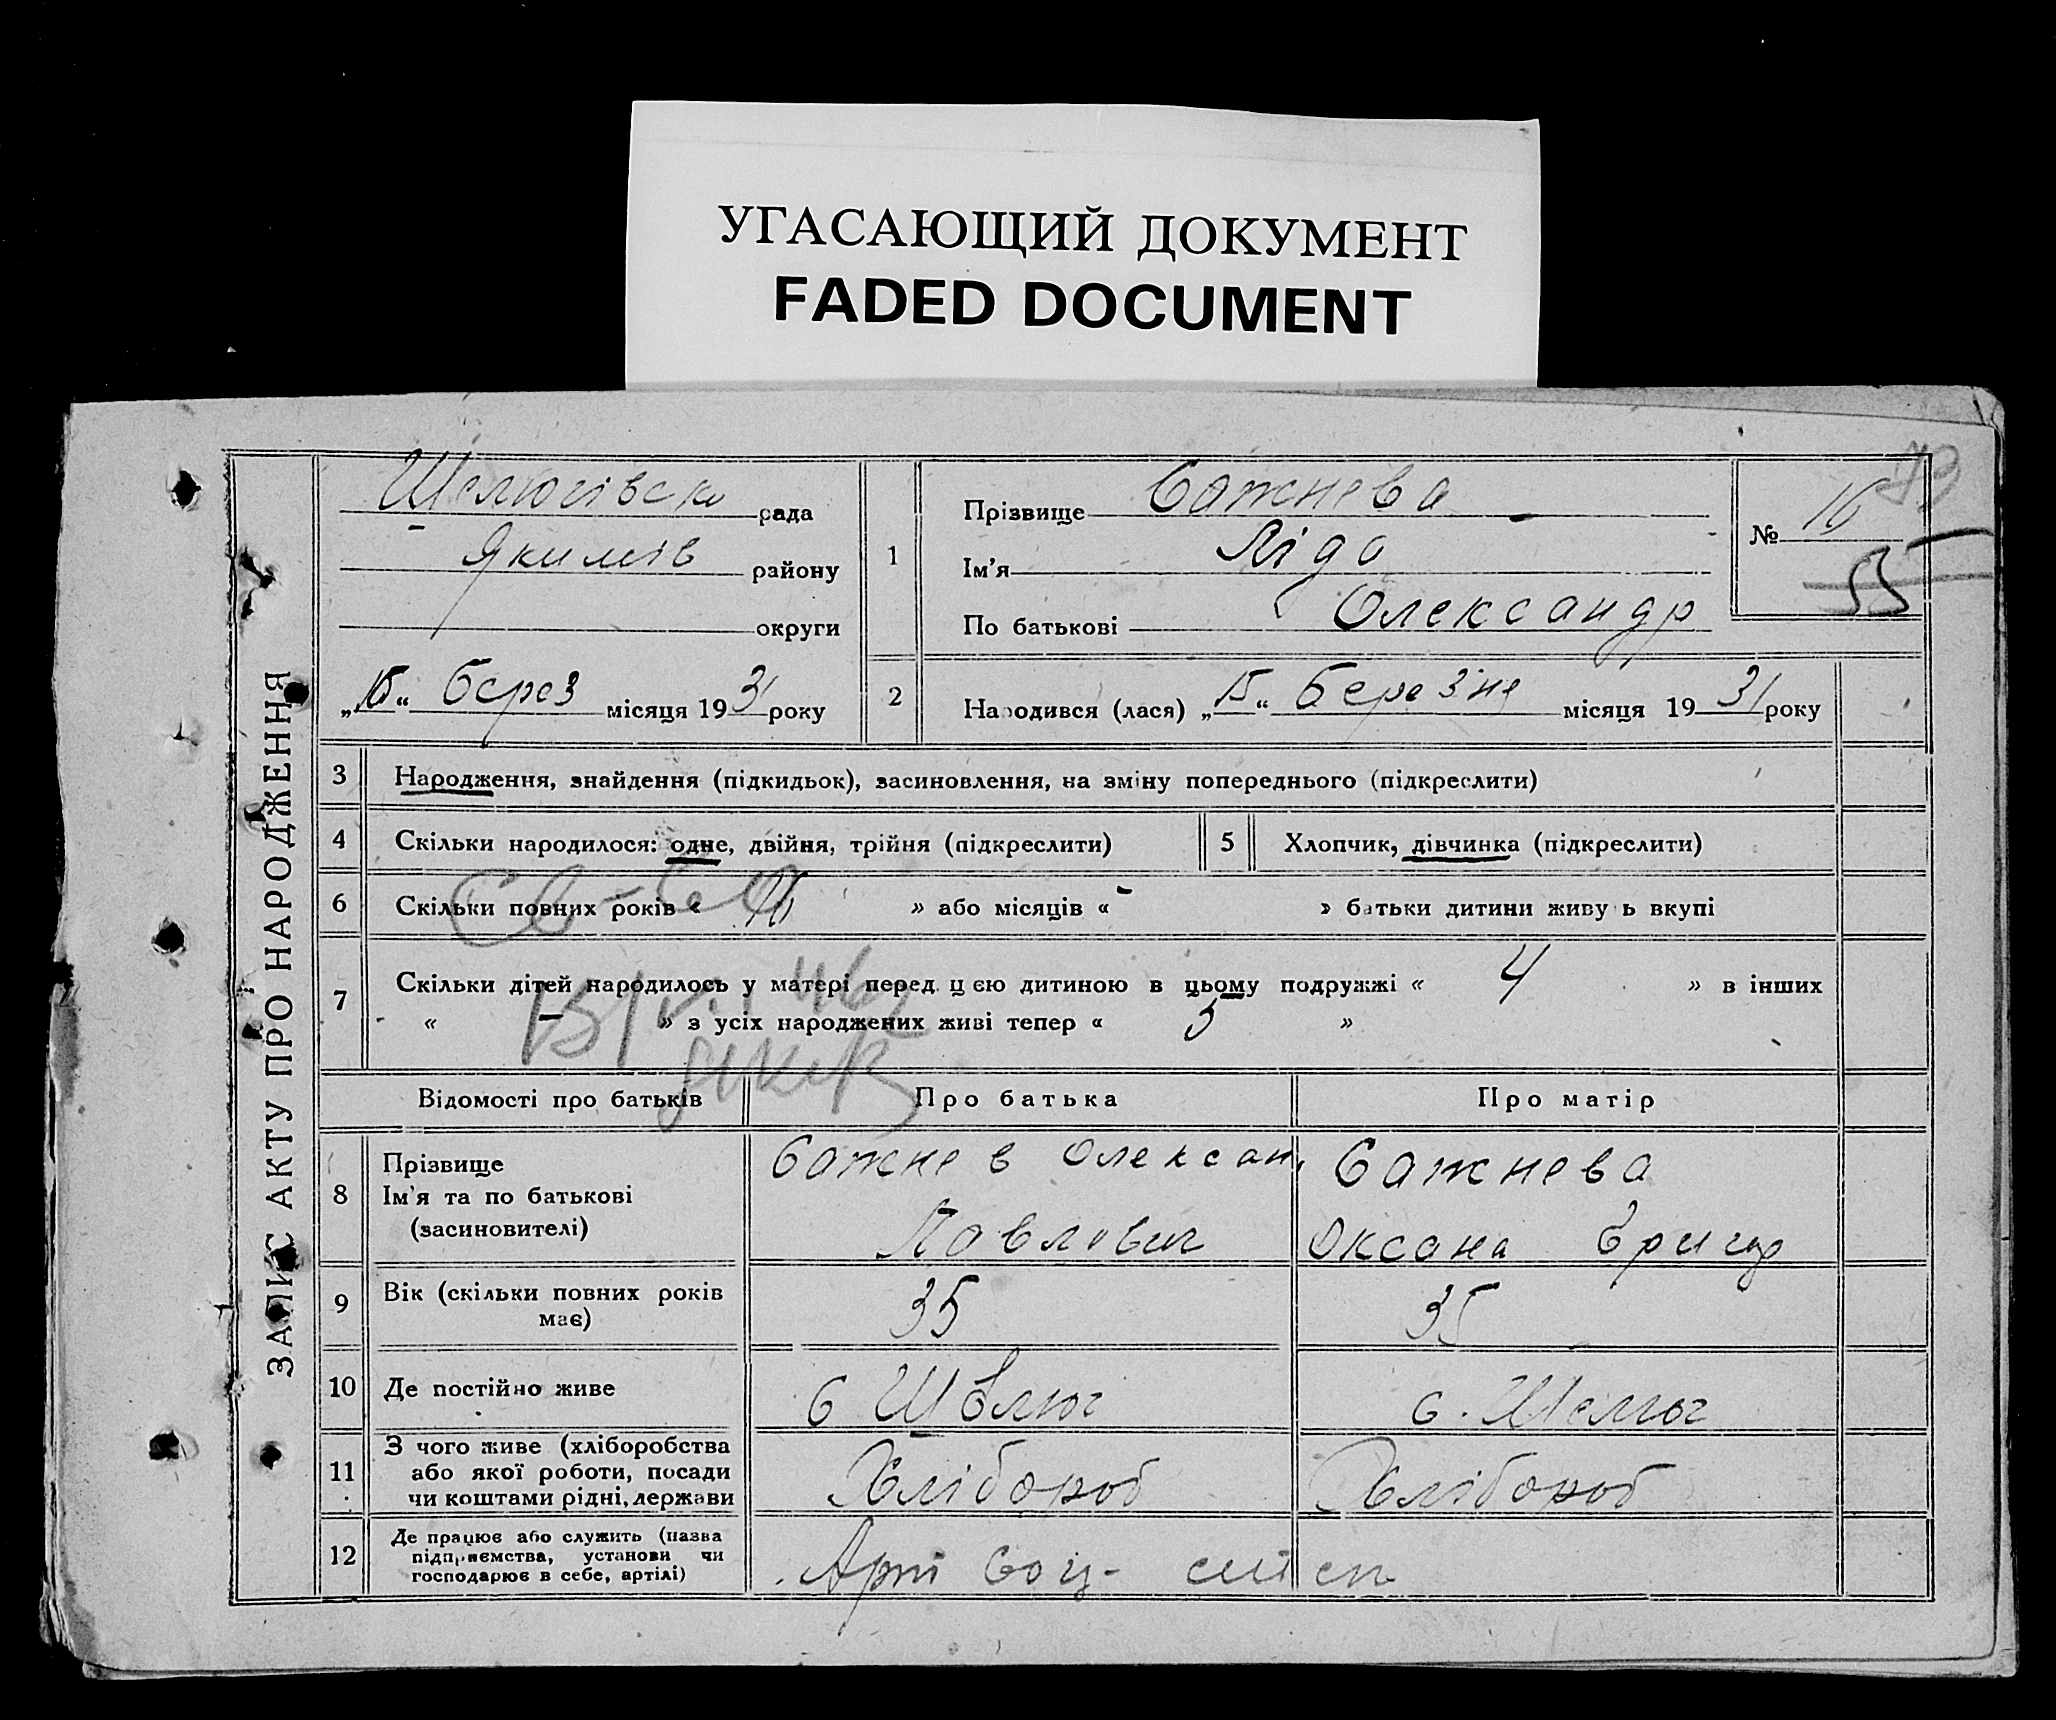 УГАСАЮЩИЙ ДОКУМЕНТ
FADED DOCUMENT
ЗАПИС АКТУ ПРО НАРОДЖЕННЯ
Шелюгівська рада
Якимів району
округи
„16“ берез місяця 1931 року
1
Прізвище Сажнева
Ім'я Ліда
По батькові Олександр
№ 16
2
Народився (лася) „15“ березня місяця 1931 року
3 Народження, знайдення (підкидьок), засиновлення, на зміну попереднього (підкреслити)
4 Скільки народилося: одне, двійня, трійня (підкреслити)
5 Хлопчик, дівчинка (підкреслити)
6 Скільки повних років « 16 » або місяців « - » батьки дитини живуть вкупі
7 Скільки дітей народилось у матері перед цією дитиною в цьому подружжі « 4 » в інших
« — » з усіх народжених живі тепер « 3 »
Відомості про батьків Про батька Про матір
8 Прізвище
Ім'я та по батькові
(засиновителі)
Сажнев Олексан
Павлович
Сажнева
Оксана
9 Вік (скільки повних років
має)
35
35
10 Де постійно живе
с Шелюг
с. Шелюг
11 З чого живе (хліборобства
або якої роботи, посади
чи коштами рідні, держави
Хлібороб
Хлібороб
12 Де працює або служить (назва
підприємства, установи чи
господарює в себе, артілі)
Арті Соц- степ